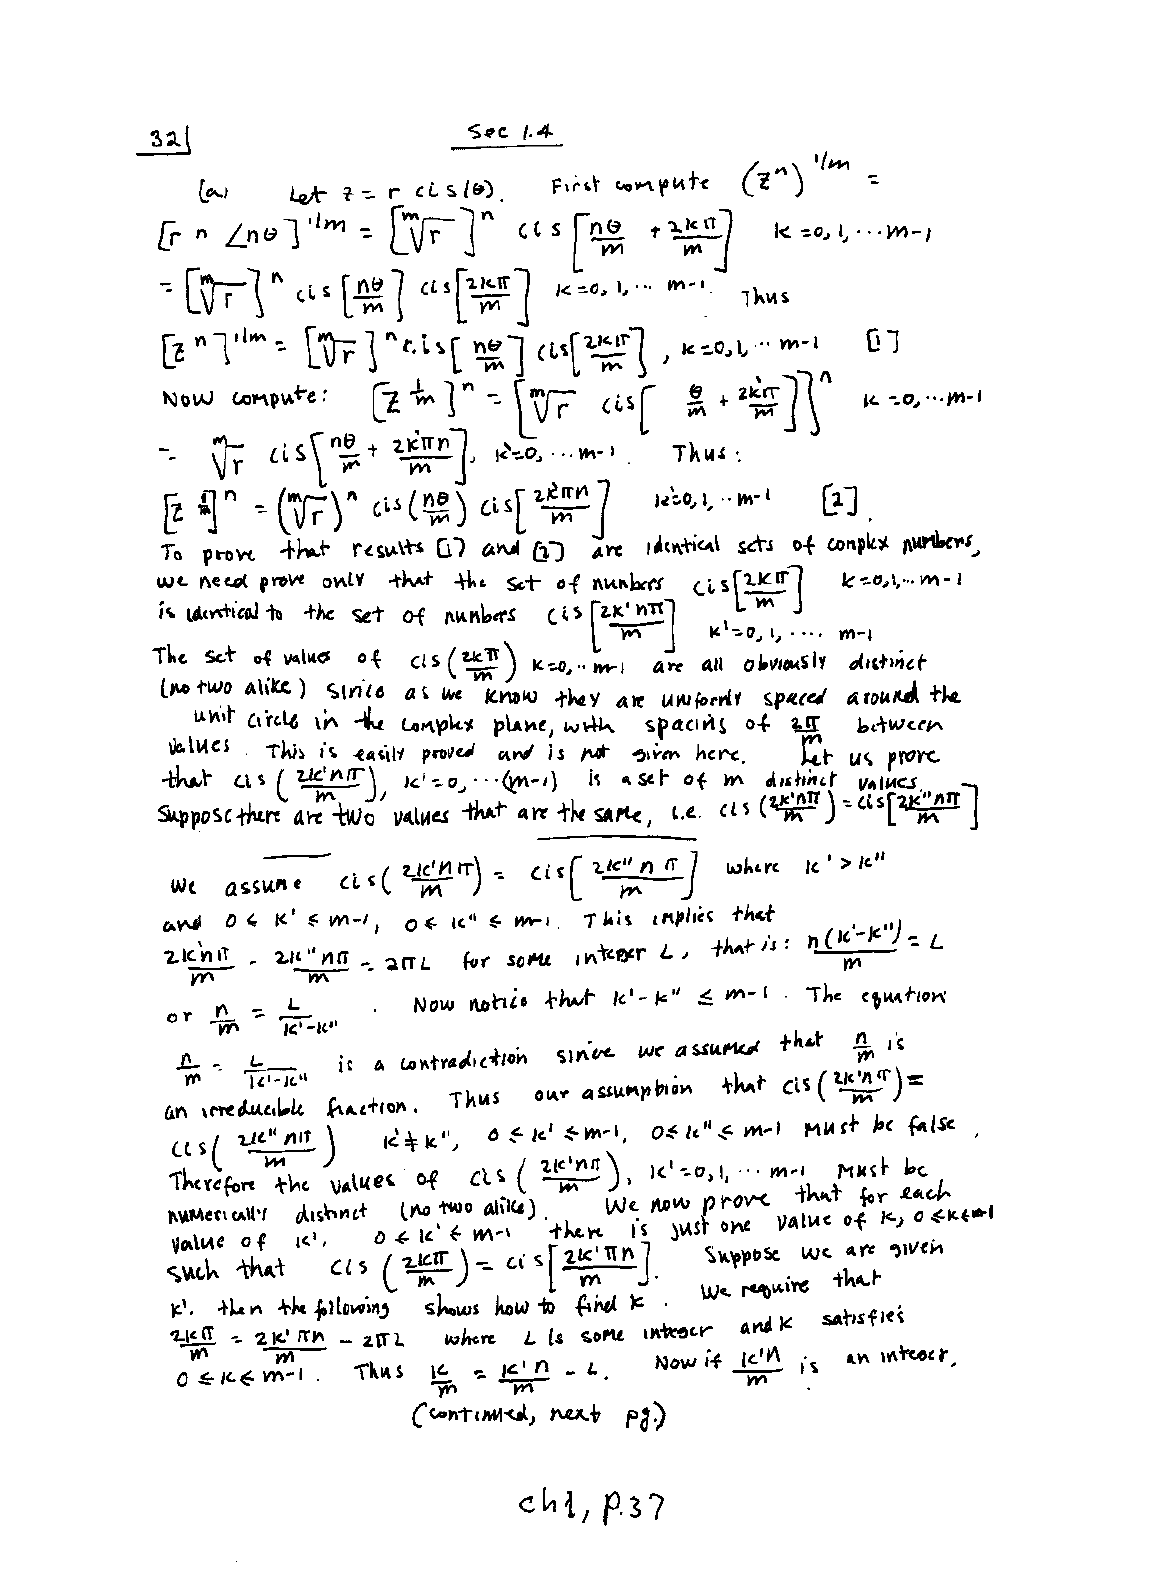 32| Sec 1.4
(a) Let z = r cis(θ). First compute (z^n)^{1/m} =
[r^n ∠nθ]^{1/m} = [ᵐ√r]^n cis[nθ/m + 2kπ/m] k=0,1,...m-1
= [ᵐ√r]^n cis[nθ/m] cis[2kπ/m] k=0,1,... m-1. Thus
[z^n]^{1/m} = [ᵐ√r]^n cis[nθ/m] cis[2kπ/m], k=0,1,... m-1 [1]
Now compute: [z^{1/m}]^n = [ᵐ√r cis[θ/m + 2k'π/m]]^n k=0,...m-1
= ᵐ√r cis[nθ/m + 2k'πn/m], k'=0,...m-1. Thus:
[z^{1/m}]^n = (ᵐ√r)^n cis(nθ/m) cis[2k'πn/m] k'=0,1,..m-1 [2].
To prove that results [1] and [2] are identical sets of complex numbers,
we need prove only that the set of numbers cis[2kπ/m] k=0,1,...m-1
is identical to the set of numbers cis[2k'nπ/m] k'=0,1,.... m-1
The set of values of cis(2kπ/m) k=0,..m-1 are all obviously distinct
(no two alike) since as we know they are uniformly spaced around the
unit circle in the complex plane, with spacing of 2π/m between
values. This is easily proved and is not given here. Let us prove
that cis(2k'nπ/m), k'=0,...(m-1) is a set of m distinct values.
Suppose there are two values that are the same, i.e. cis(2k'nπ/m) = cis[2k''nπ/m]
We assume cis(2k'nπ/m) = cis[2k''nπ/m] where k' > k''
and 0 ≤ k' ≤ m-1, 0 ≤ k'' ≤ m-1. This implies that
2k'nπ/m - 2k''nπ/m = 2πL for some integer L, that is: n(k'-k'')/m = L
or n/m = L/(k'-k''). Now notice that k'-k'' ≤ m-1. The equation
n/m = L/(k'-k'') is a contradiction since we assumed that n/m is
an irreducible fraction. Thus our assumption that cis(2k'nπ/m) =
cis(2k''nπ/m) k'≠k'', 0 ≤ k' ≤ m-1, 0 ≤ k'' ≤ m-1 must be false.
Therefore the values of cis(2k'nπ/m), k'=0,1,... m-1 must be
numerically distinct (no two alike). We now prove that for each
value of k', 0 ≤ k' ≤ m-1 there is just one value of k, 0 ≤ k ≤ m-1
such that cis(2kπ/m) = cis[2k'πn/m]. Suppose we are given
k'. then the following shows how to find k. We require that
2kπ/m = 2k'πn/m - 2πL where L is some integer and k satisfies
0 ≤ k ≤ m-1. Thus k/m = k'n/m - L. Now if k'n/m is an integer,
(continued, next pg.)
ch1, p.37